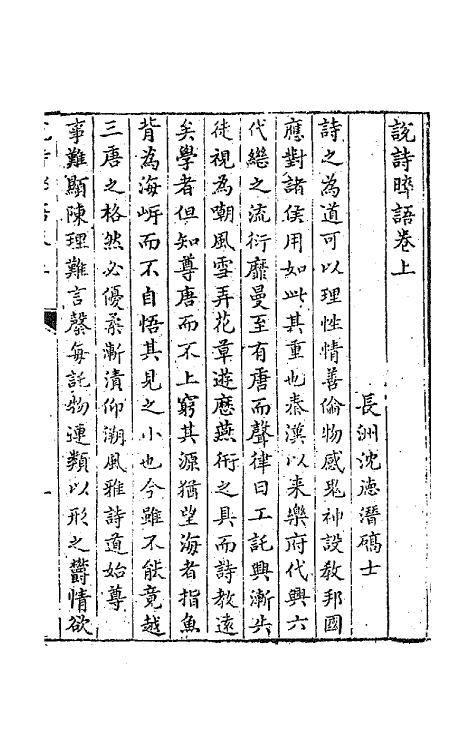 說詩晬語卷上
長洲沈德潛碻士
詩之為道可以理性情善倫物感鬼神設教邦國
應對諸侯用如此其重也秦漢以来樂府代興六
代繼之流衍靡曼至有唐而聲律日工託興漸失
徒視為嘲風雪弄花草遊歷燕衎之具而詩教遠
矣學者但知尊唐而不上窮其源猶望海者指魚
背為海岍而不自悟其見之小也今雖不能竟越
三唐之格然必優柔漸漬仰溯風雅詩道始尊
事難顯陳理難言罄每託物連類以形之鬱情欲